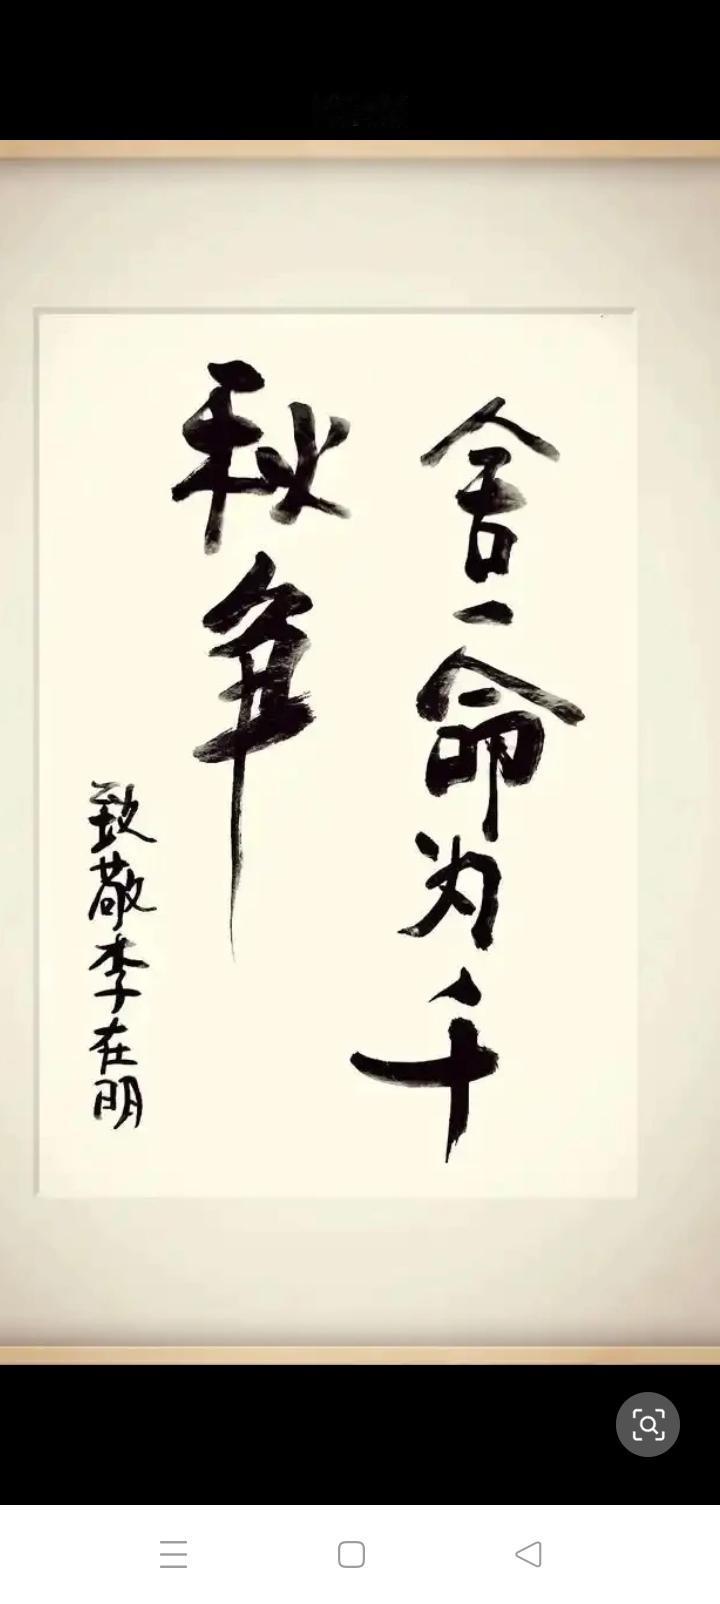 舍一命为千
秋争
致敬李在明